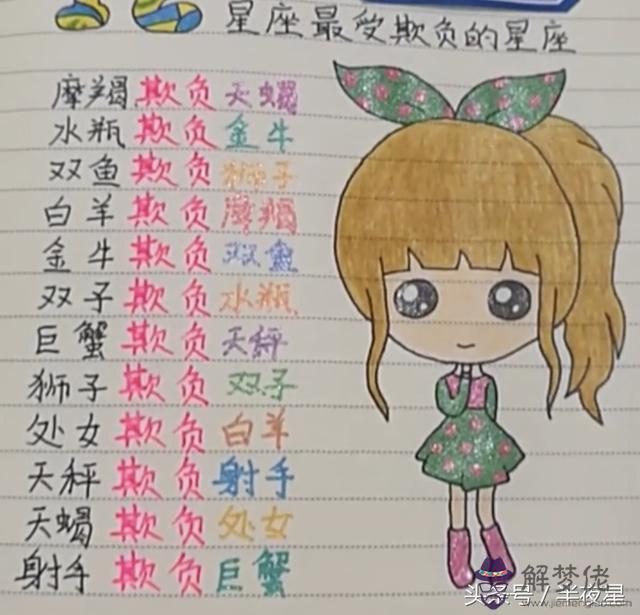 星座最受欺负的星座
摩羯欺负天蝎
水瓶欺负金牛
双鱼欺负狮子
白羊欺负摩羯
金牛欺负双鱼
双子欺负水瓶
巨蟹欺负天秤
狮子欺负双子
处女欺负白羊
天秤欺负射手
天蝎欺负处女
射手欺负巨蟹
头条号／半夜星
解梦佬